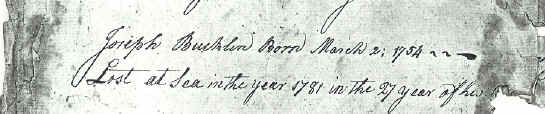 Joseph Bucklin Born March 2: 1754 ~~
Lost at Sea in the year 1781 in the 27 year of his